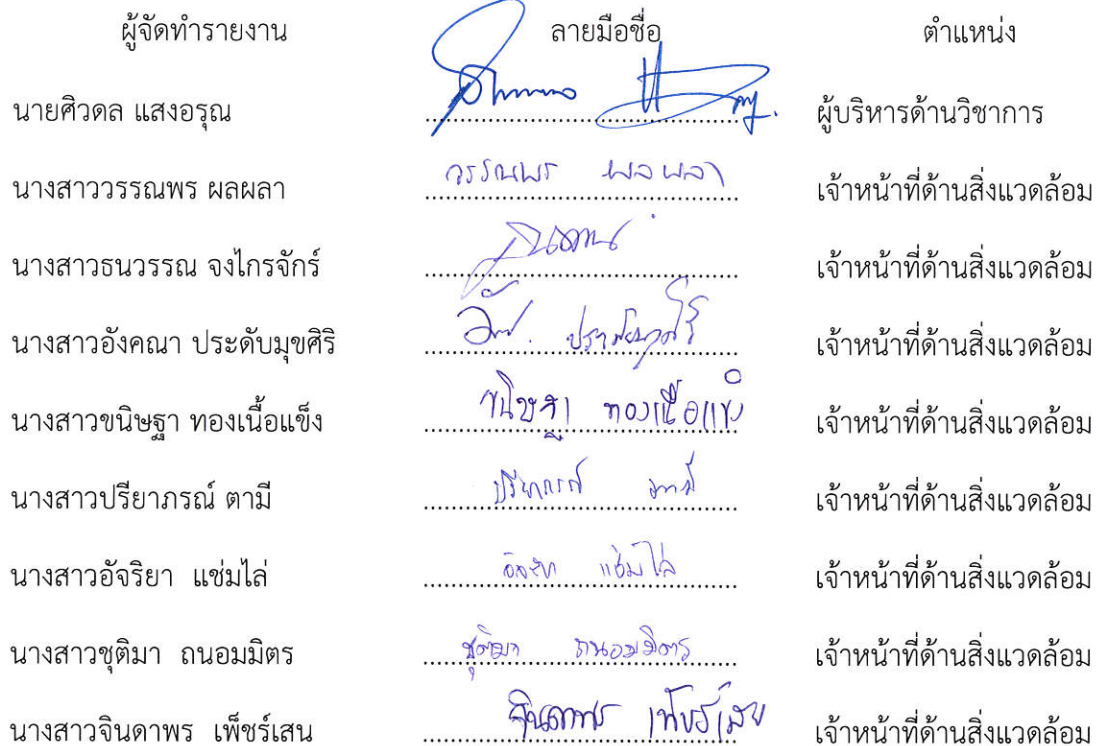 ผู้จัดทำรายงาน ลายมือชื่อ ตำแหน่ง
นายศิวดล แสงอรุณ ผู้บริหารด้านวิชาการ
นางสาววรรณพร ผลผลา วรรณพร ผลผลา เจ้าหน้าที่ด้านสิ่งแวดล้อม
นางสาวธนวรรณ จงไกรจักร์ เจ้าหน้าที่ด้านสิ่งแวดล้อม
นางสาวอังคณา ประดับมุขศิริ เจ้าหน้าที่ด้านสิ่งแวดล้อม
นางสาวขนิษฐา ทองเนื้อแข็ง ขนิษฐา ทองเนื้อแข็ง เจ้าหน้าที่ด้านสิ่งแวดล้อม
นางสาวปรียาภรณ์ ตามี ปรียาภรณ์ ตามี เจ้าหน้าที่ด้านสิ่งแวดล้อม
นางสาวอัจริยา แช่มไล่ อัจริยา แช่มไล่ เจ้าหน้าที่ด้านสิ่งแวดล้อม
นางสาวชุติมา ถนอมมิตร ชุติมา ถนอมมิตร เจ้าหน้าที่ด้านสิ่งแวดล้อม
นางสาวจินดาพร เพ็ชร์เสน จินดาพร เพ็ชร์เสน เจ้าหน้าที่ด้านสิ่งแวดล้อม